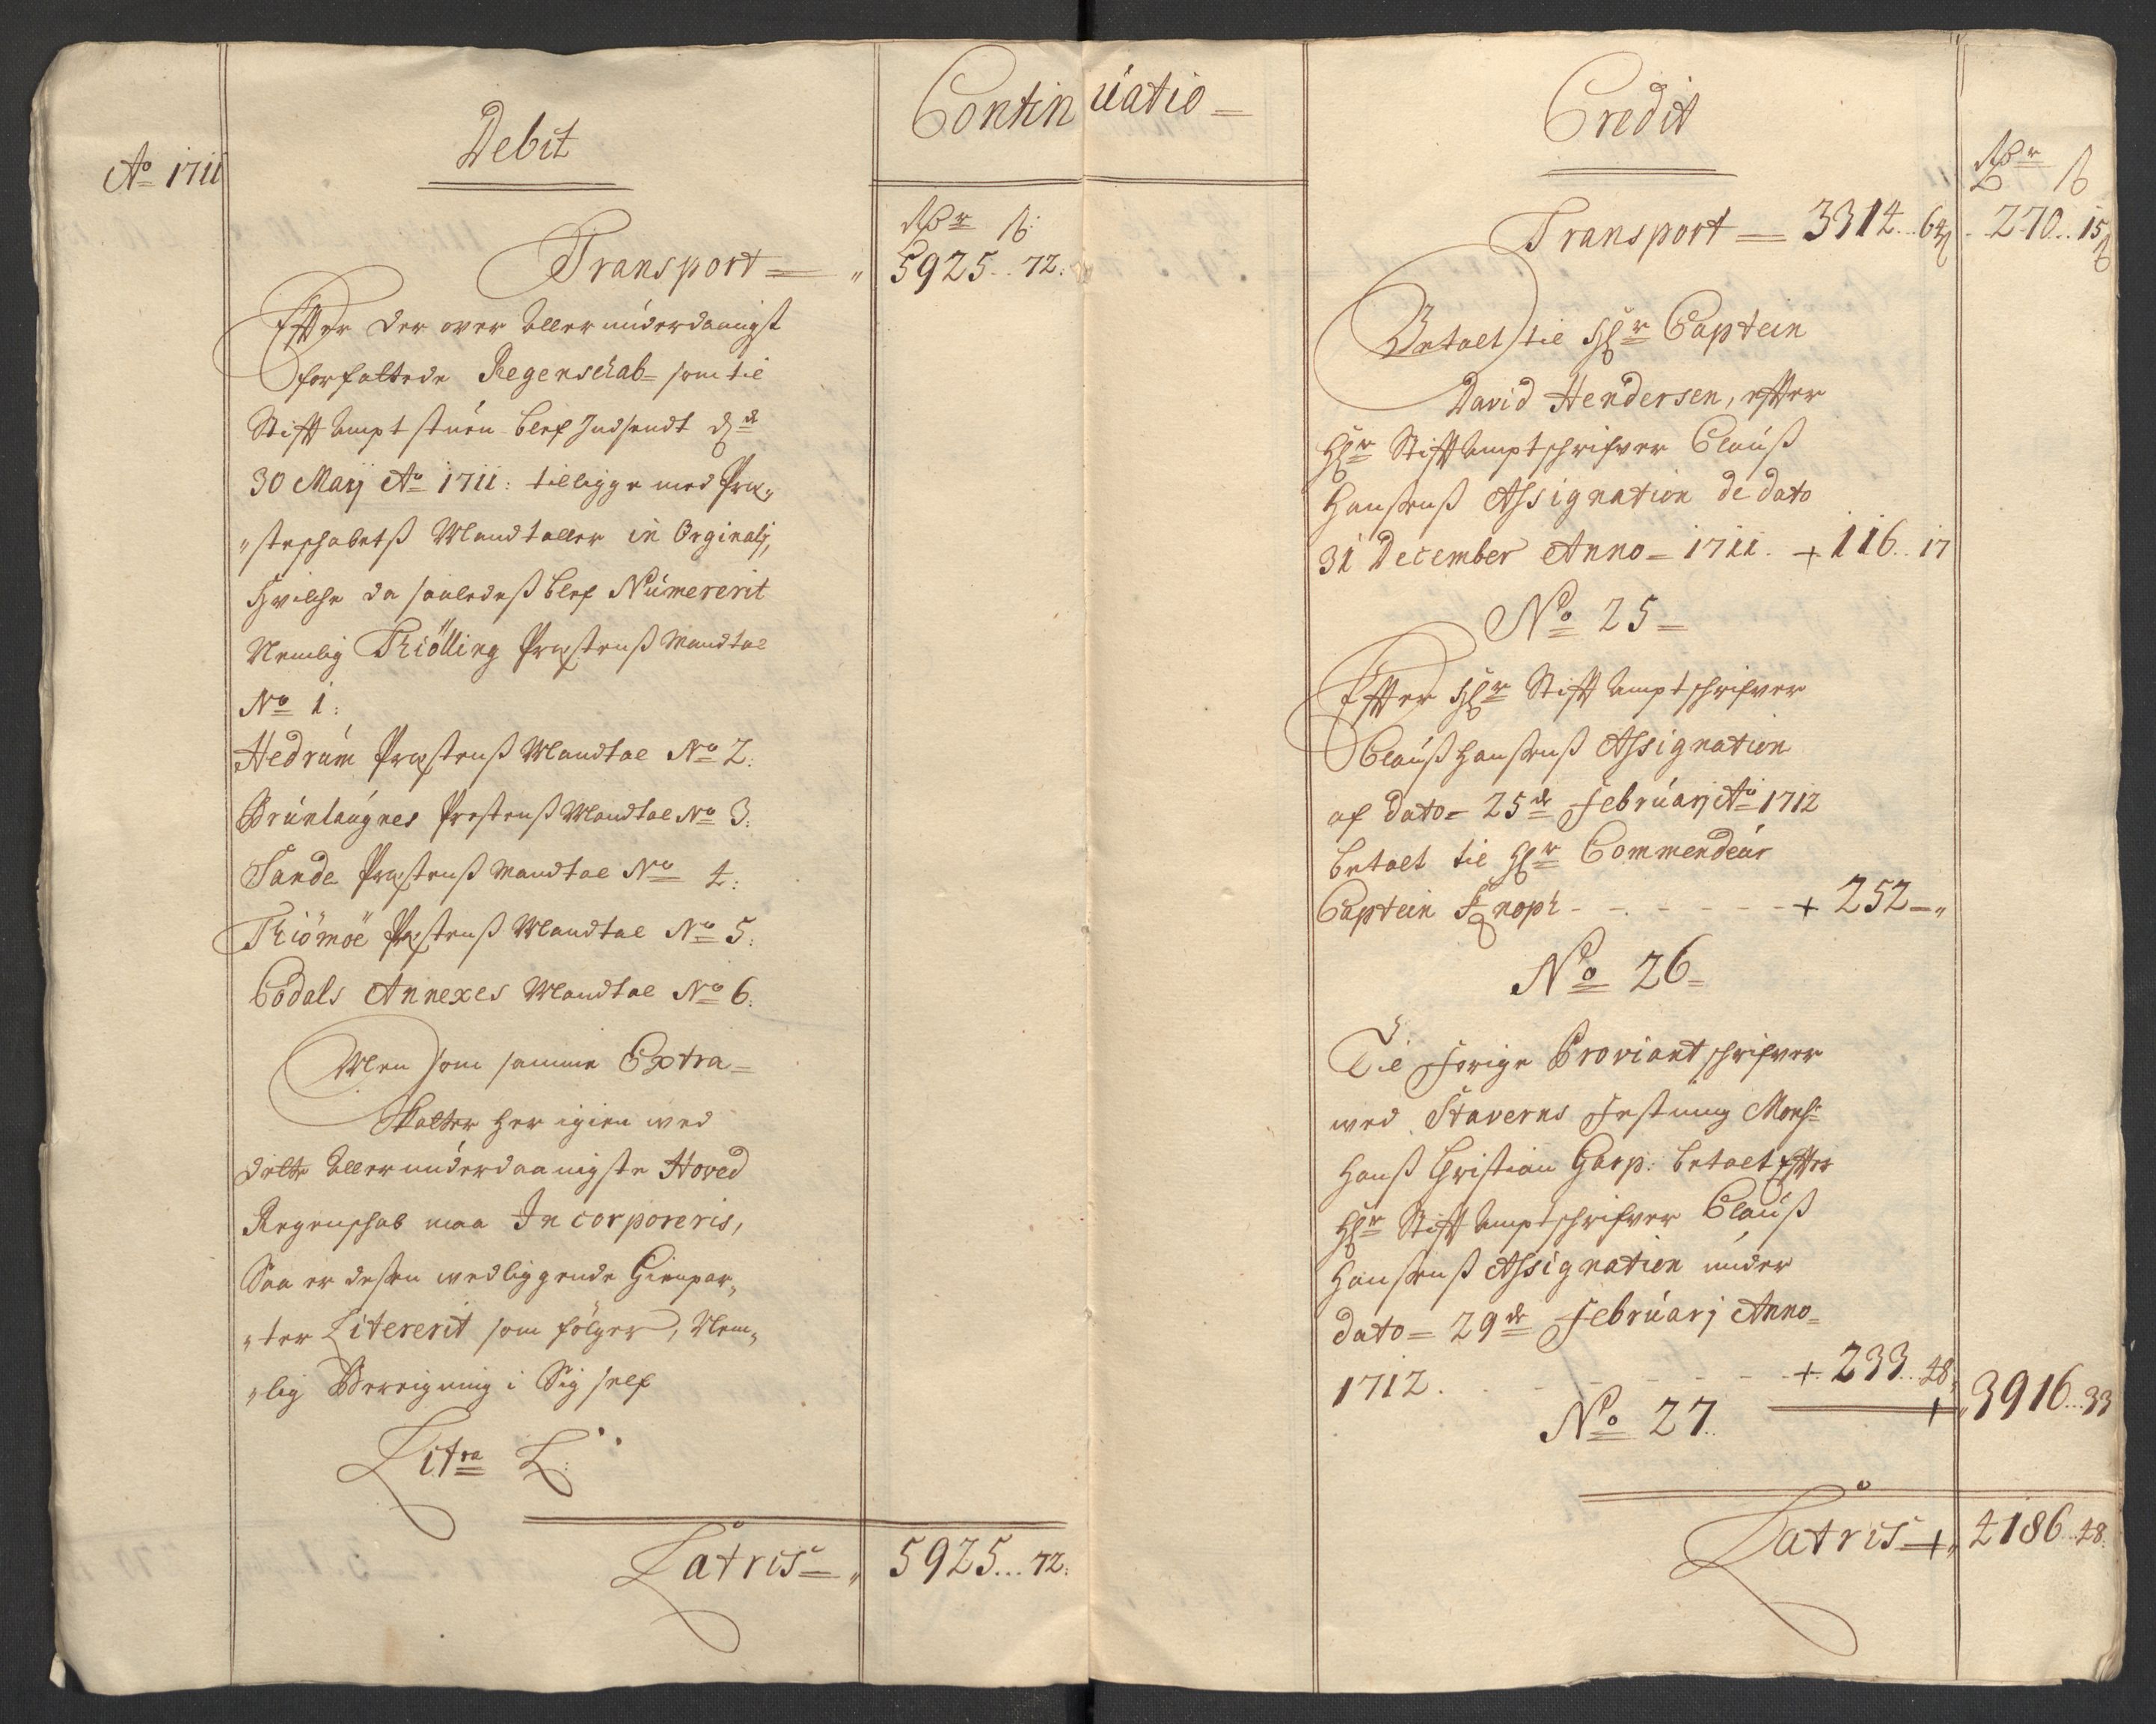 Continuatio
Ao 1711
Debit
Rdr ß:
Transport 5925..72:
Effter der over allerunderdaanigst
forfattede Regenschab som til
Stiftamptstuen blef Indsendt d:
30 Maij Ao 1711: tilligge med Præ,,
,,steschabetß Mandtaller in Orginalj,
Hvilche da saaledeß blef Númererit
Nemlig Thiölling Præstenß Mandtal
No 1:
Hedrúm Præstenß Mandtal No 2:
Brúnlaúgnes Prestenß Mandtal No 3:
Sande Præstenß Mandtal No 4:
Thiömöe Præstenß Mandtal No 5:
Codals Annexes Mandtal No 6:
Men som samme Extra
Skatter her igien ved
dette allerunderdaanigste Hoved
Regenschab maa Incorporeris,
Saa er deßen vedliggende Gienpar,,
,,ter Litererit som fölger, Nem,,
,,lig Bereigning i Sig self
Litra L:
Latris 5925...72:
Credit
Rdr ß
Transport 3314..64 270..15
Betalt til Hr Captein
David Hendersen, efter
Hr Stiftamptschrifver Claúß
Hanßenß Assignation de dato
31 December Anno 1711. + 116..17
No 25
Effter Hr Stiftamptschrifver
Claúß Hanßenß Assignation
af dato 25de Febrúarj Ao 1712
betalt til Hr Commendeúr
Captein Knoph - - - - - + 252 ,,
No 26
Til forige Proviantschrifver
ved Staverns Festning Monsr
Hanß Christian Garp: betalt Effter
Hr Stiftamptschrifver Claúß
Hanßenß Assignation únder
dato 29de Febrúarj Anno
1712. - - - - - + 233..48 3916...33
No 27
Latris 4186..48.